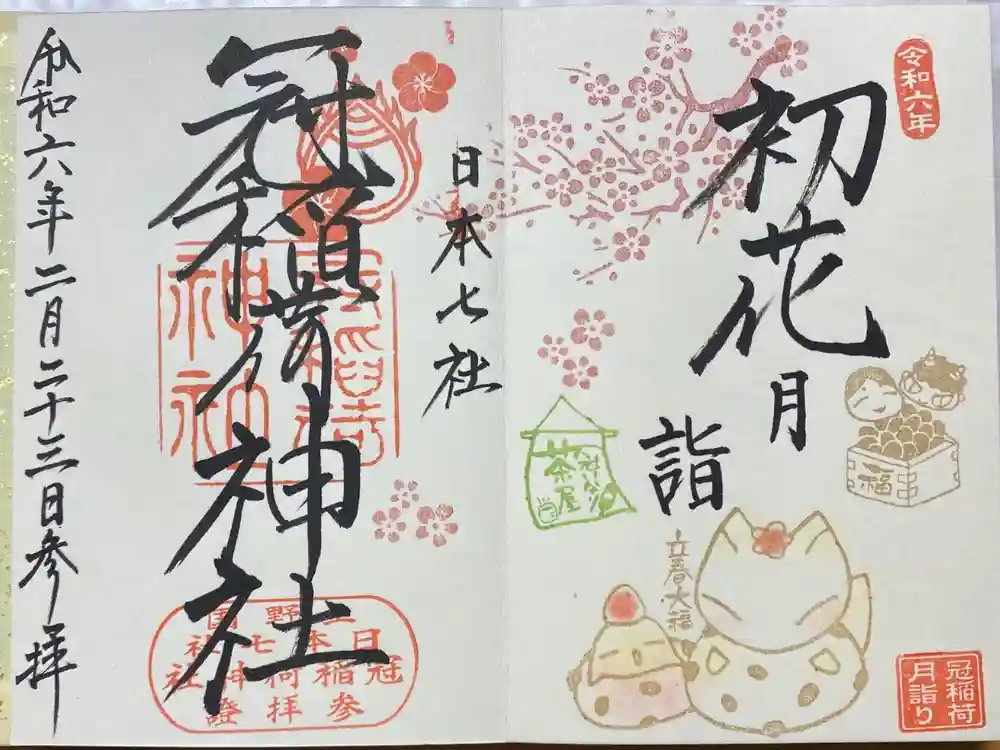 令和六年
初花月
詣
福
茶屋
立春大福
冠稲荷
月詣り
日本七社
冠稲荷神社
冠稲荷
神社
上野国
日本七社
冠稲荷神社
参拝證
令和六年二月二十三日参拝